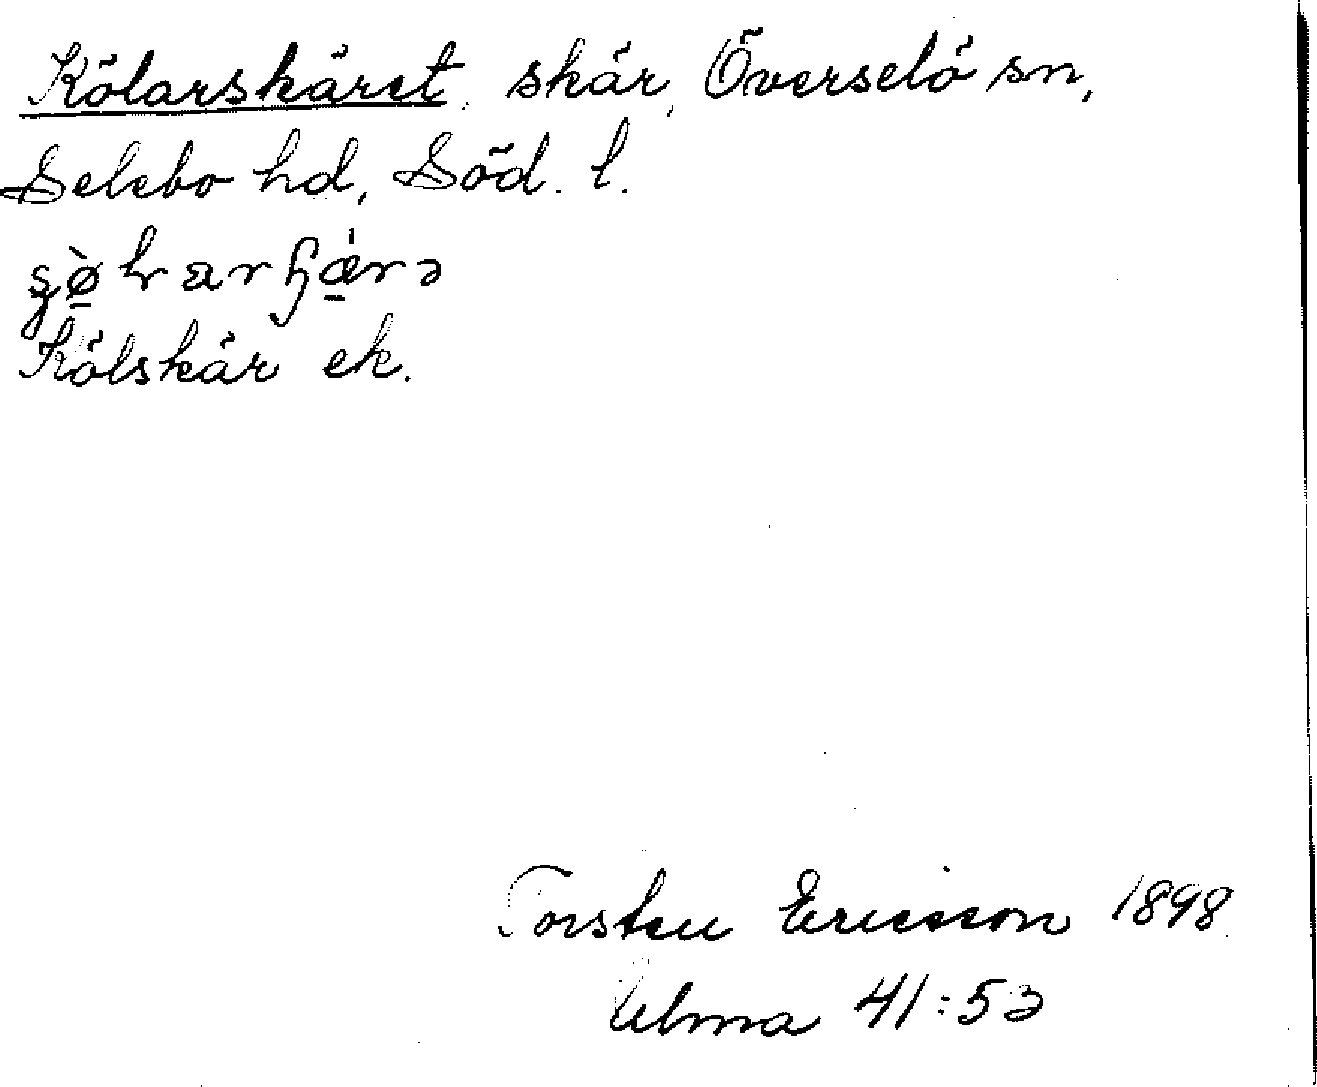 Kölarskäret, skär, Överselö sn,
Selebo hd, Söd. l.
Kölskär ek.
Torsten Ericsson 1898.
Ulma 41:53